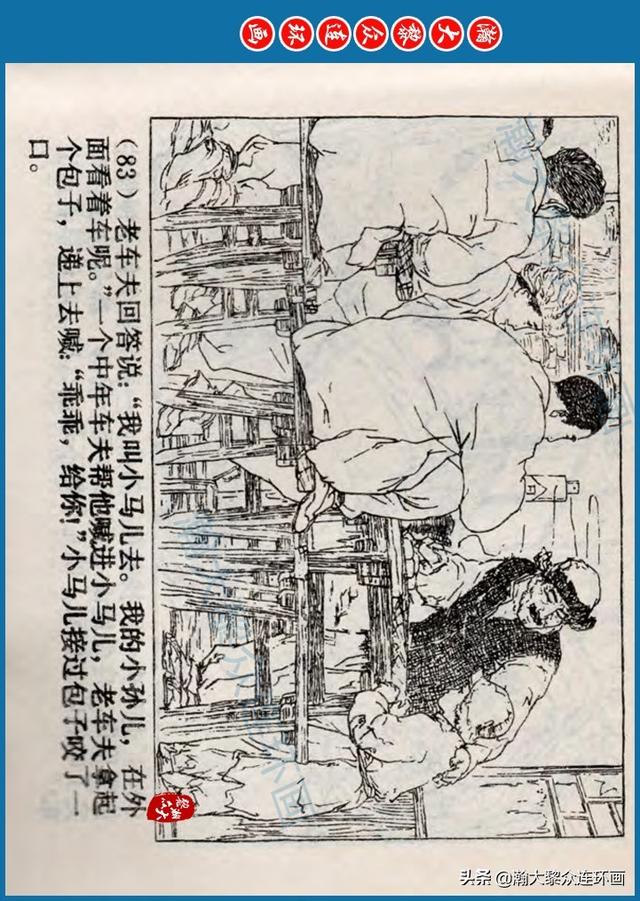 瀚大黎众连环画
(83) 老车夫回答说:“我叫小马儿去。我的小孙儿,在外
面看着车呢。”一个中年车夫帮他喊进小马儿,老车夫拿起
个包子,递上去喊:“乖乖,给你!”小马儿接过包子咬了一
口。
瀚大黎众连环画
瀚大黎众
头条 @瀚大黎众连环画